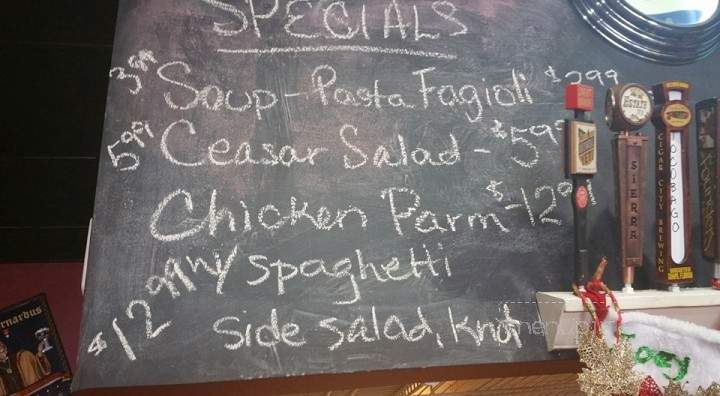 SPECIALS
3.99 Soup - Pasta Fagioli $2.99
5.99 Ceasar Salad - $5.99
Chicken Parm - $12.99
w/ spaghetti
$12.99
side salad, knot
ESTATE
SIERRA
CIGAR CITY BREWING
TOCOBAGO
rnardus